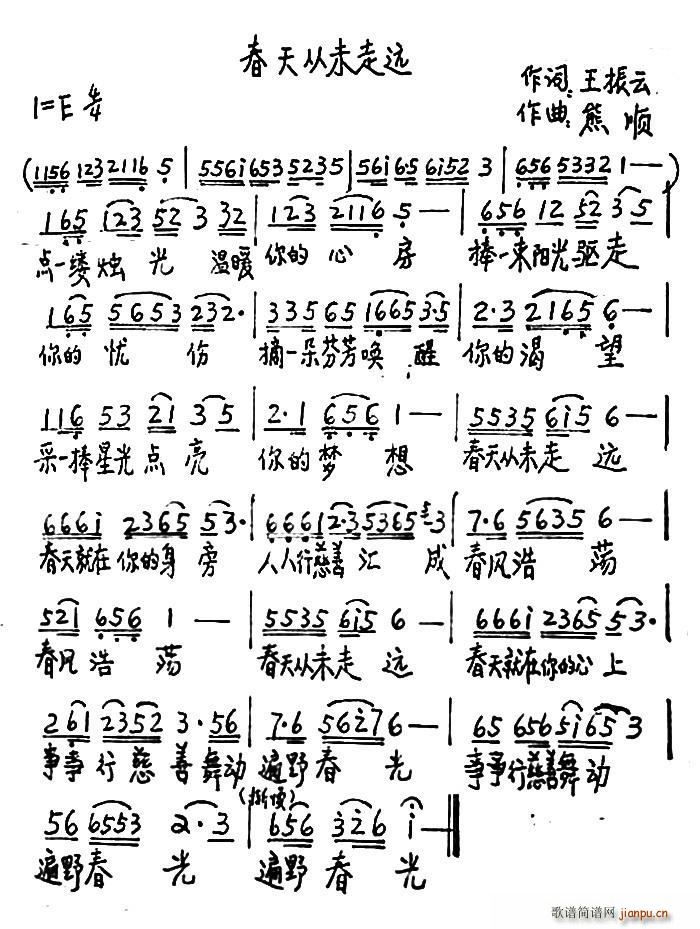 春天从未走远
作词:王振云
1=E 4/4
作曲:熊顺
(1156 123 2116 5 | 556i 653 5235 | 56i 6·5 6i52 3 | 656 5332 1 — — )
165 123 52 3 32 | 123 2116 5 — | 656 12 52 35
点一缕烛光 温暖你的心房 捧一束阳光驱走
165 5653 232· | 335 65 1665 3·5 | 2·3 2165 6 —
你的忧伤 摘一朵芬芳唤醒你的渴望
116 53 21 35 | 2·1 656 1 — | 5535 6i5 6 —
采一捧星光点亮 你的梦想 春天从未走远
666i 2365 53· | 6661 2·3 5365 3 | 7·6 5635 6 —
春天就在你的身旁 人人行慈善汇成 春风浩荡
521 656 1 — | 5535 6i5 6 — | 666i 2365 53·
春风浩荡 春天从未走远 春天就在你的心上
261 2352 3·56 | 7·6 56i7 6 — | 65 656 5i65 3
事事行慈善舞动遍野春光 事事行慈善舞动
(渐慢)
56 6553 2·3 | 656 326 i — ‖
遍野春光 遍野春光
歌谱简谱网
jianpu.cn